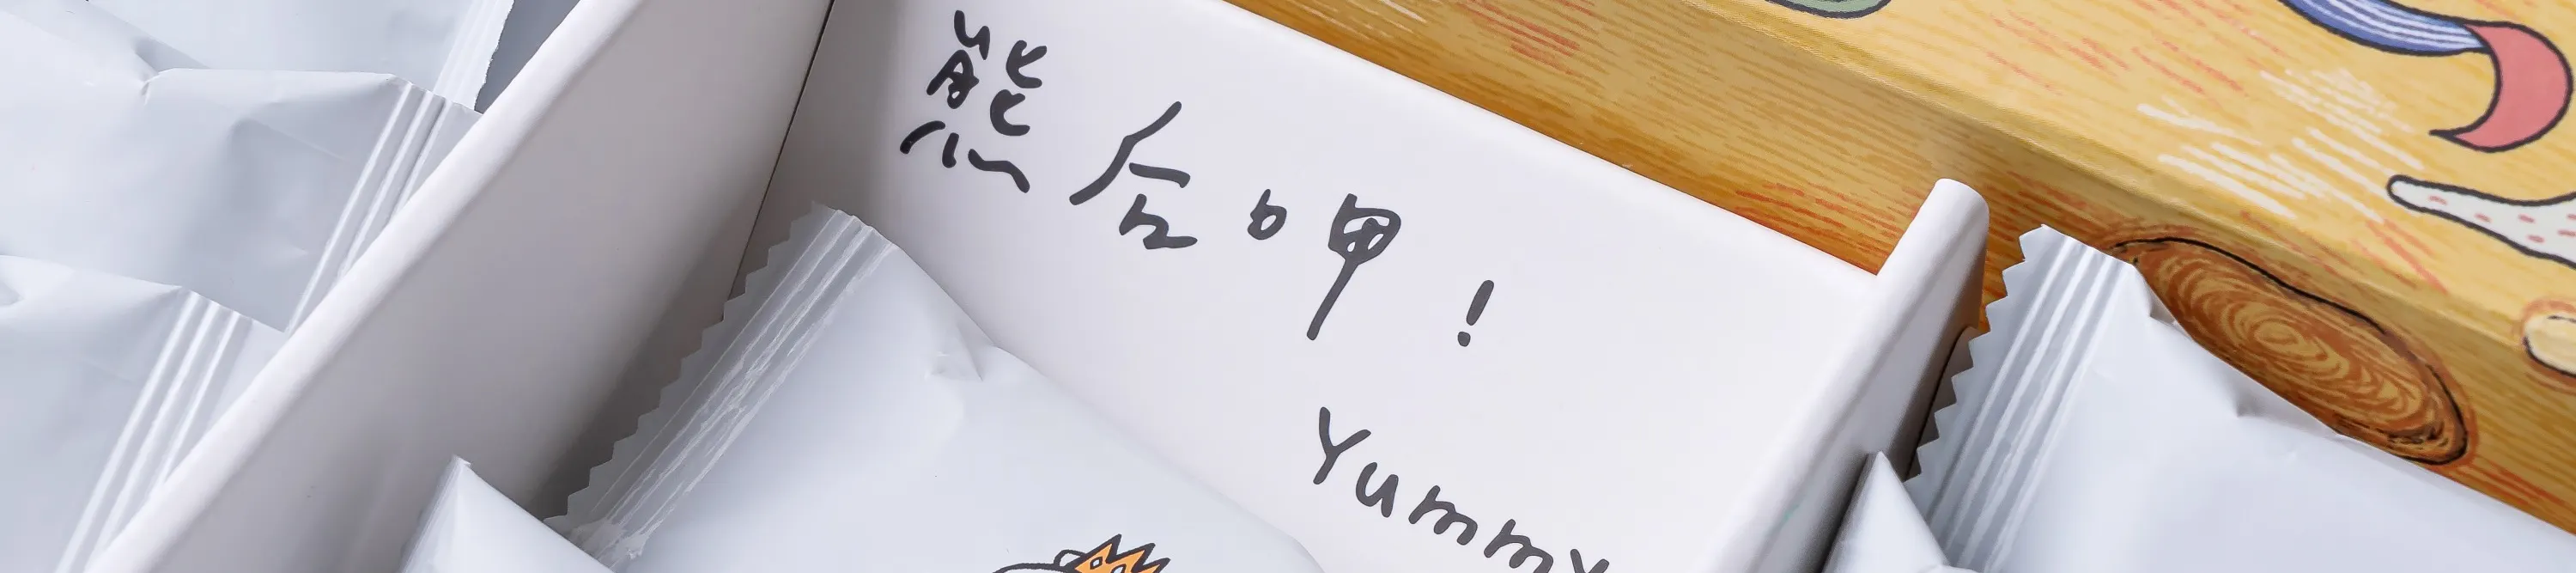 熊合呷!
Yummy